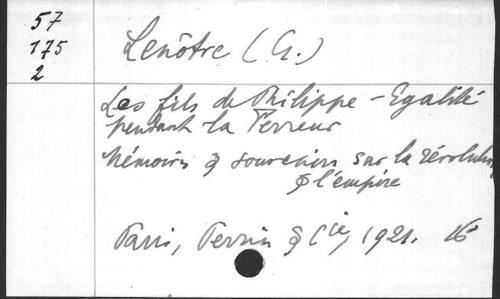 57
175
2
Lenôtre (G.)
Les fils de Philippe-Egalité
pendant la Terreur
Mémoires & souvenirs sur la révolution
& l'empire
Paris, Perrin & Cie, 1921. 16°